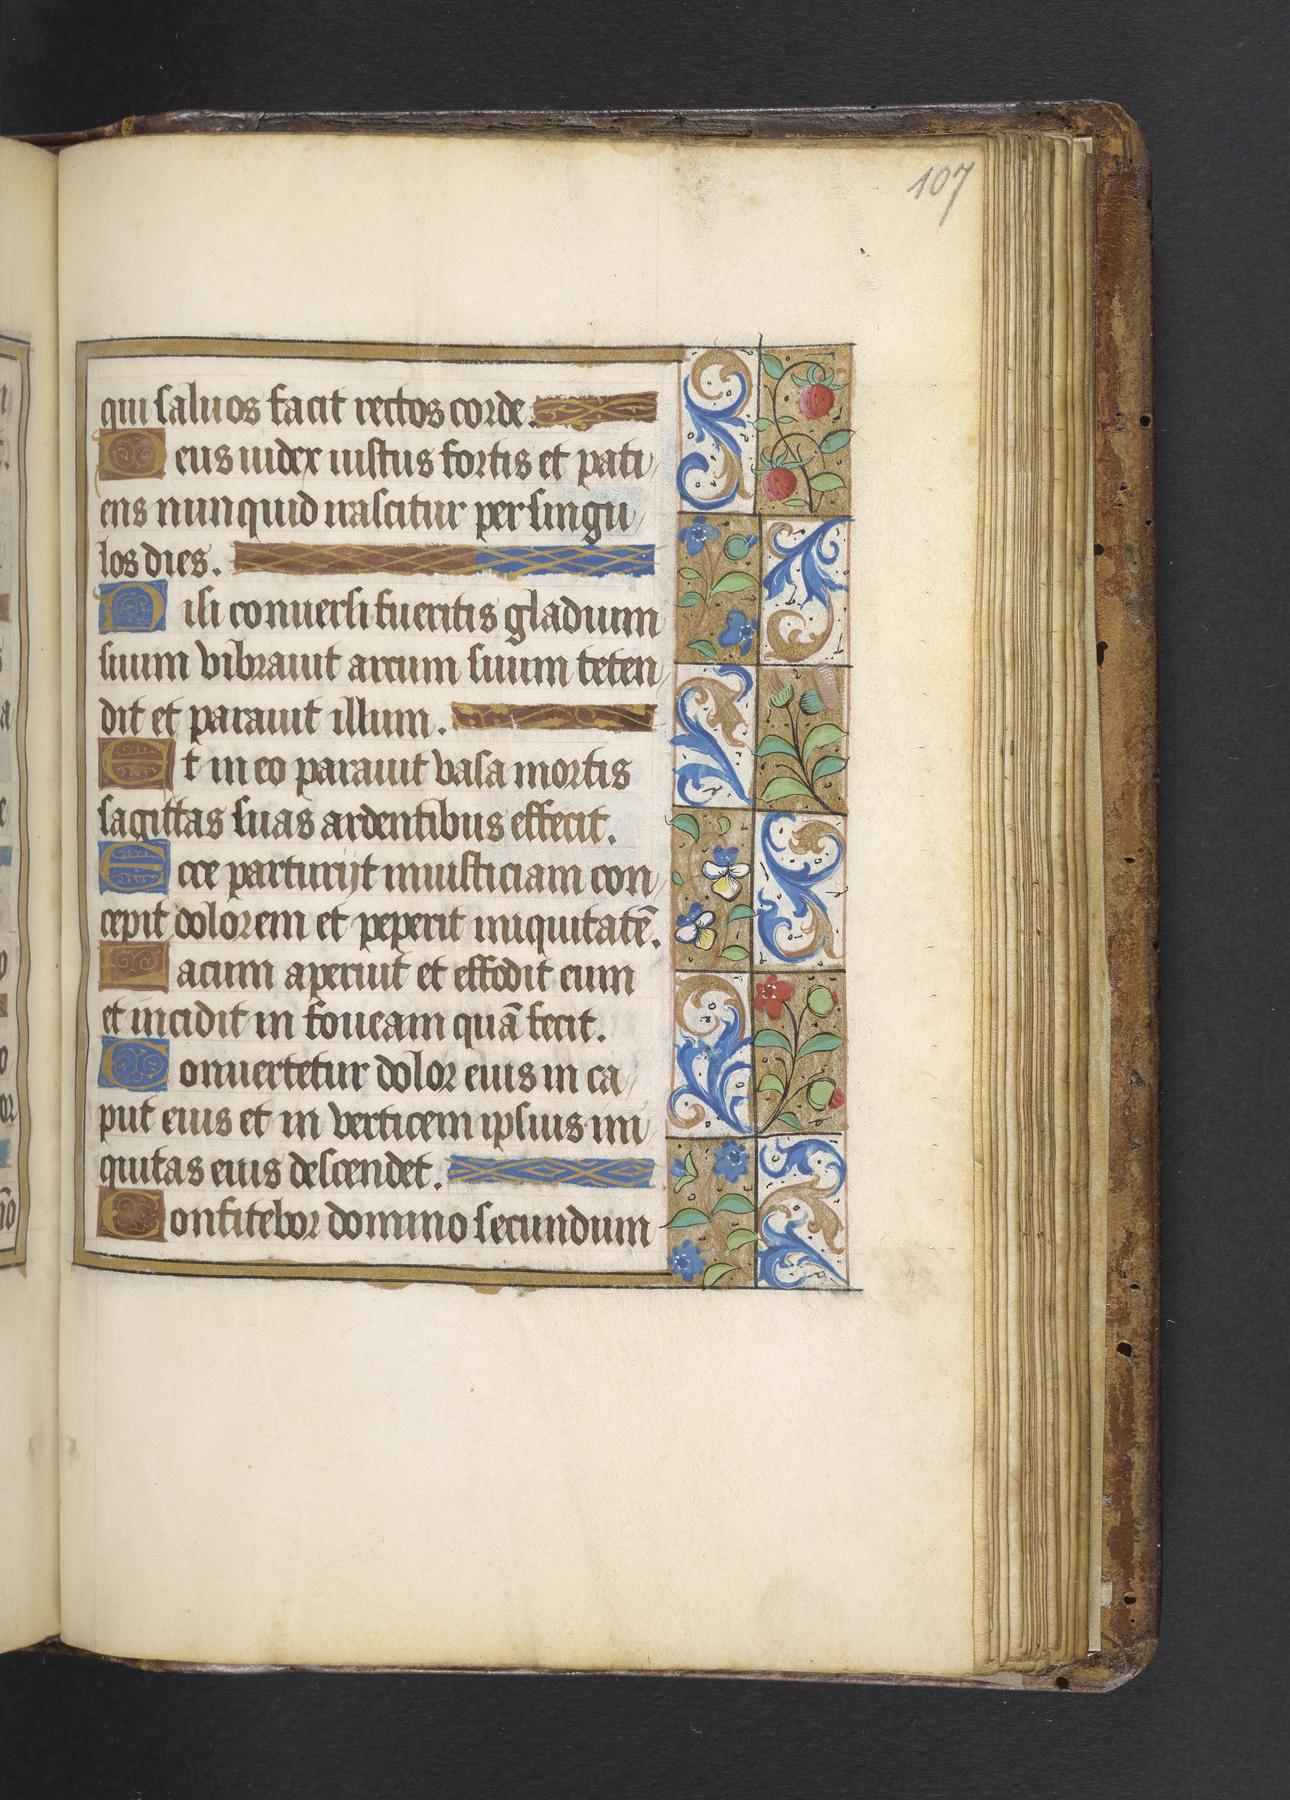 107
qui saluos facit rectos corde.
Deus iudex iustus fortis et pati
ens nunquid irascitur per singu
los dies.
Nisi conuersi fueritis gladium
suum vibrauit arcum suum teten
dit et parauit illum.
Et in eo parauit vasa mortis
sagittas suas ardentibus effecit.
Ecce parturijt iniusticiam con
cepit dolorem et peperit iniquitatē.
Lacum aperuit et effodit eum
et incidit in foueam quā fecit.
Conuertetur dolor eius in ca
put eius et in verticem ipsius ini
quitas eius descendet.
Confitebor domino secundum